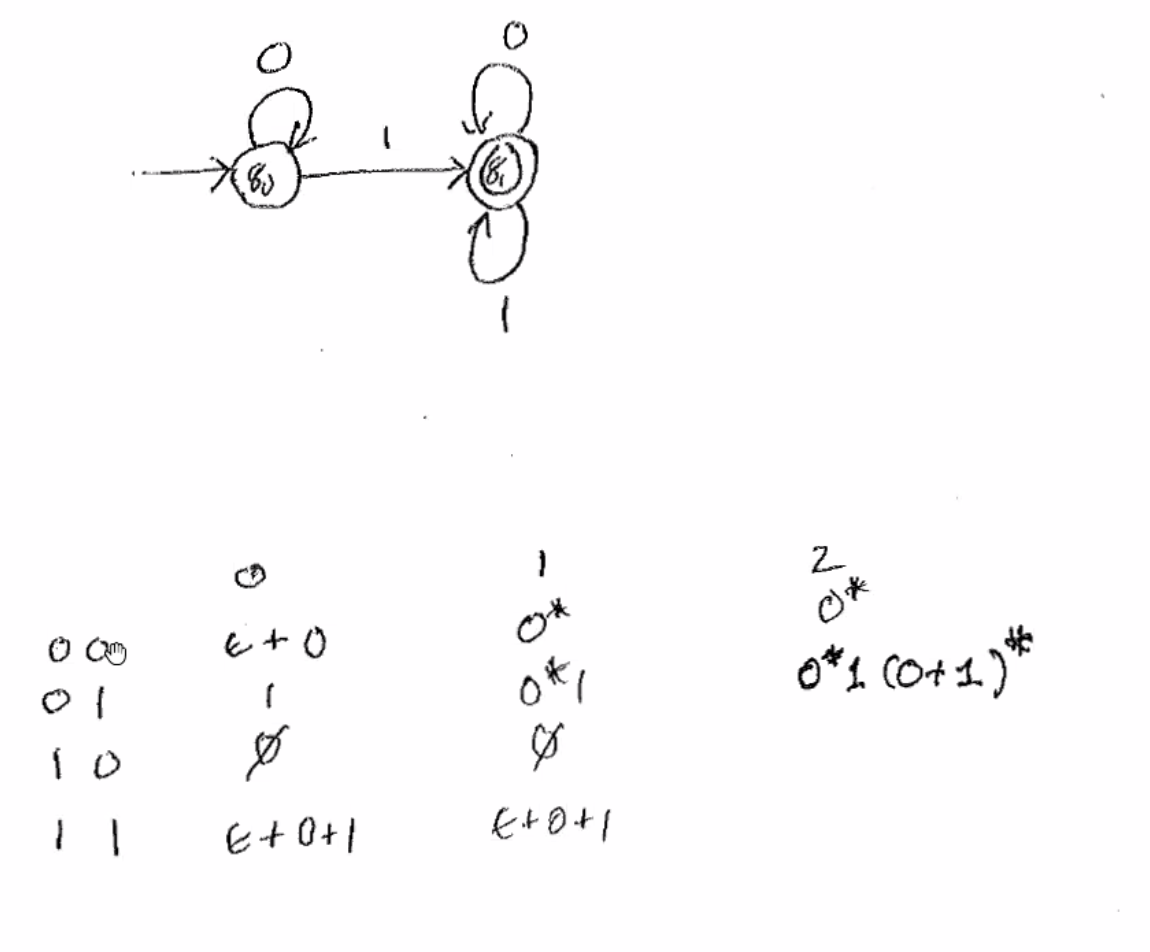 0 0
1
q₀ q₁
1
0 1 2
0*
0 0 ε + 0 0*
0 1 1 0*1 0*1(0+1)*
1 0 ∅ ∅
1 1 ε+0+1 ε+0+1